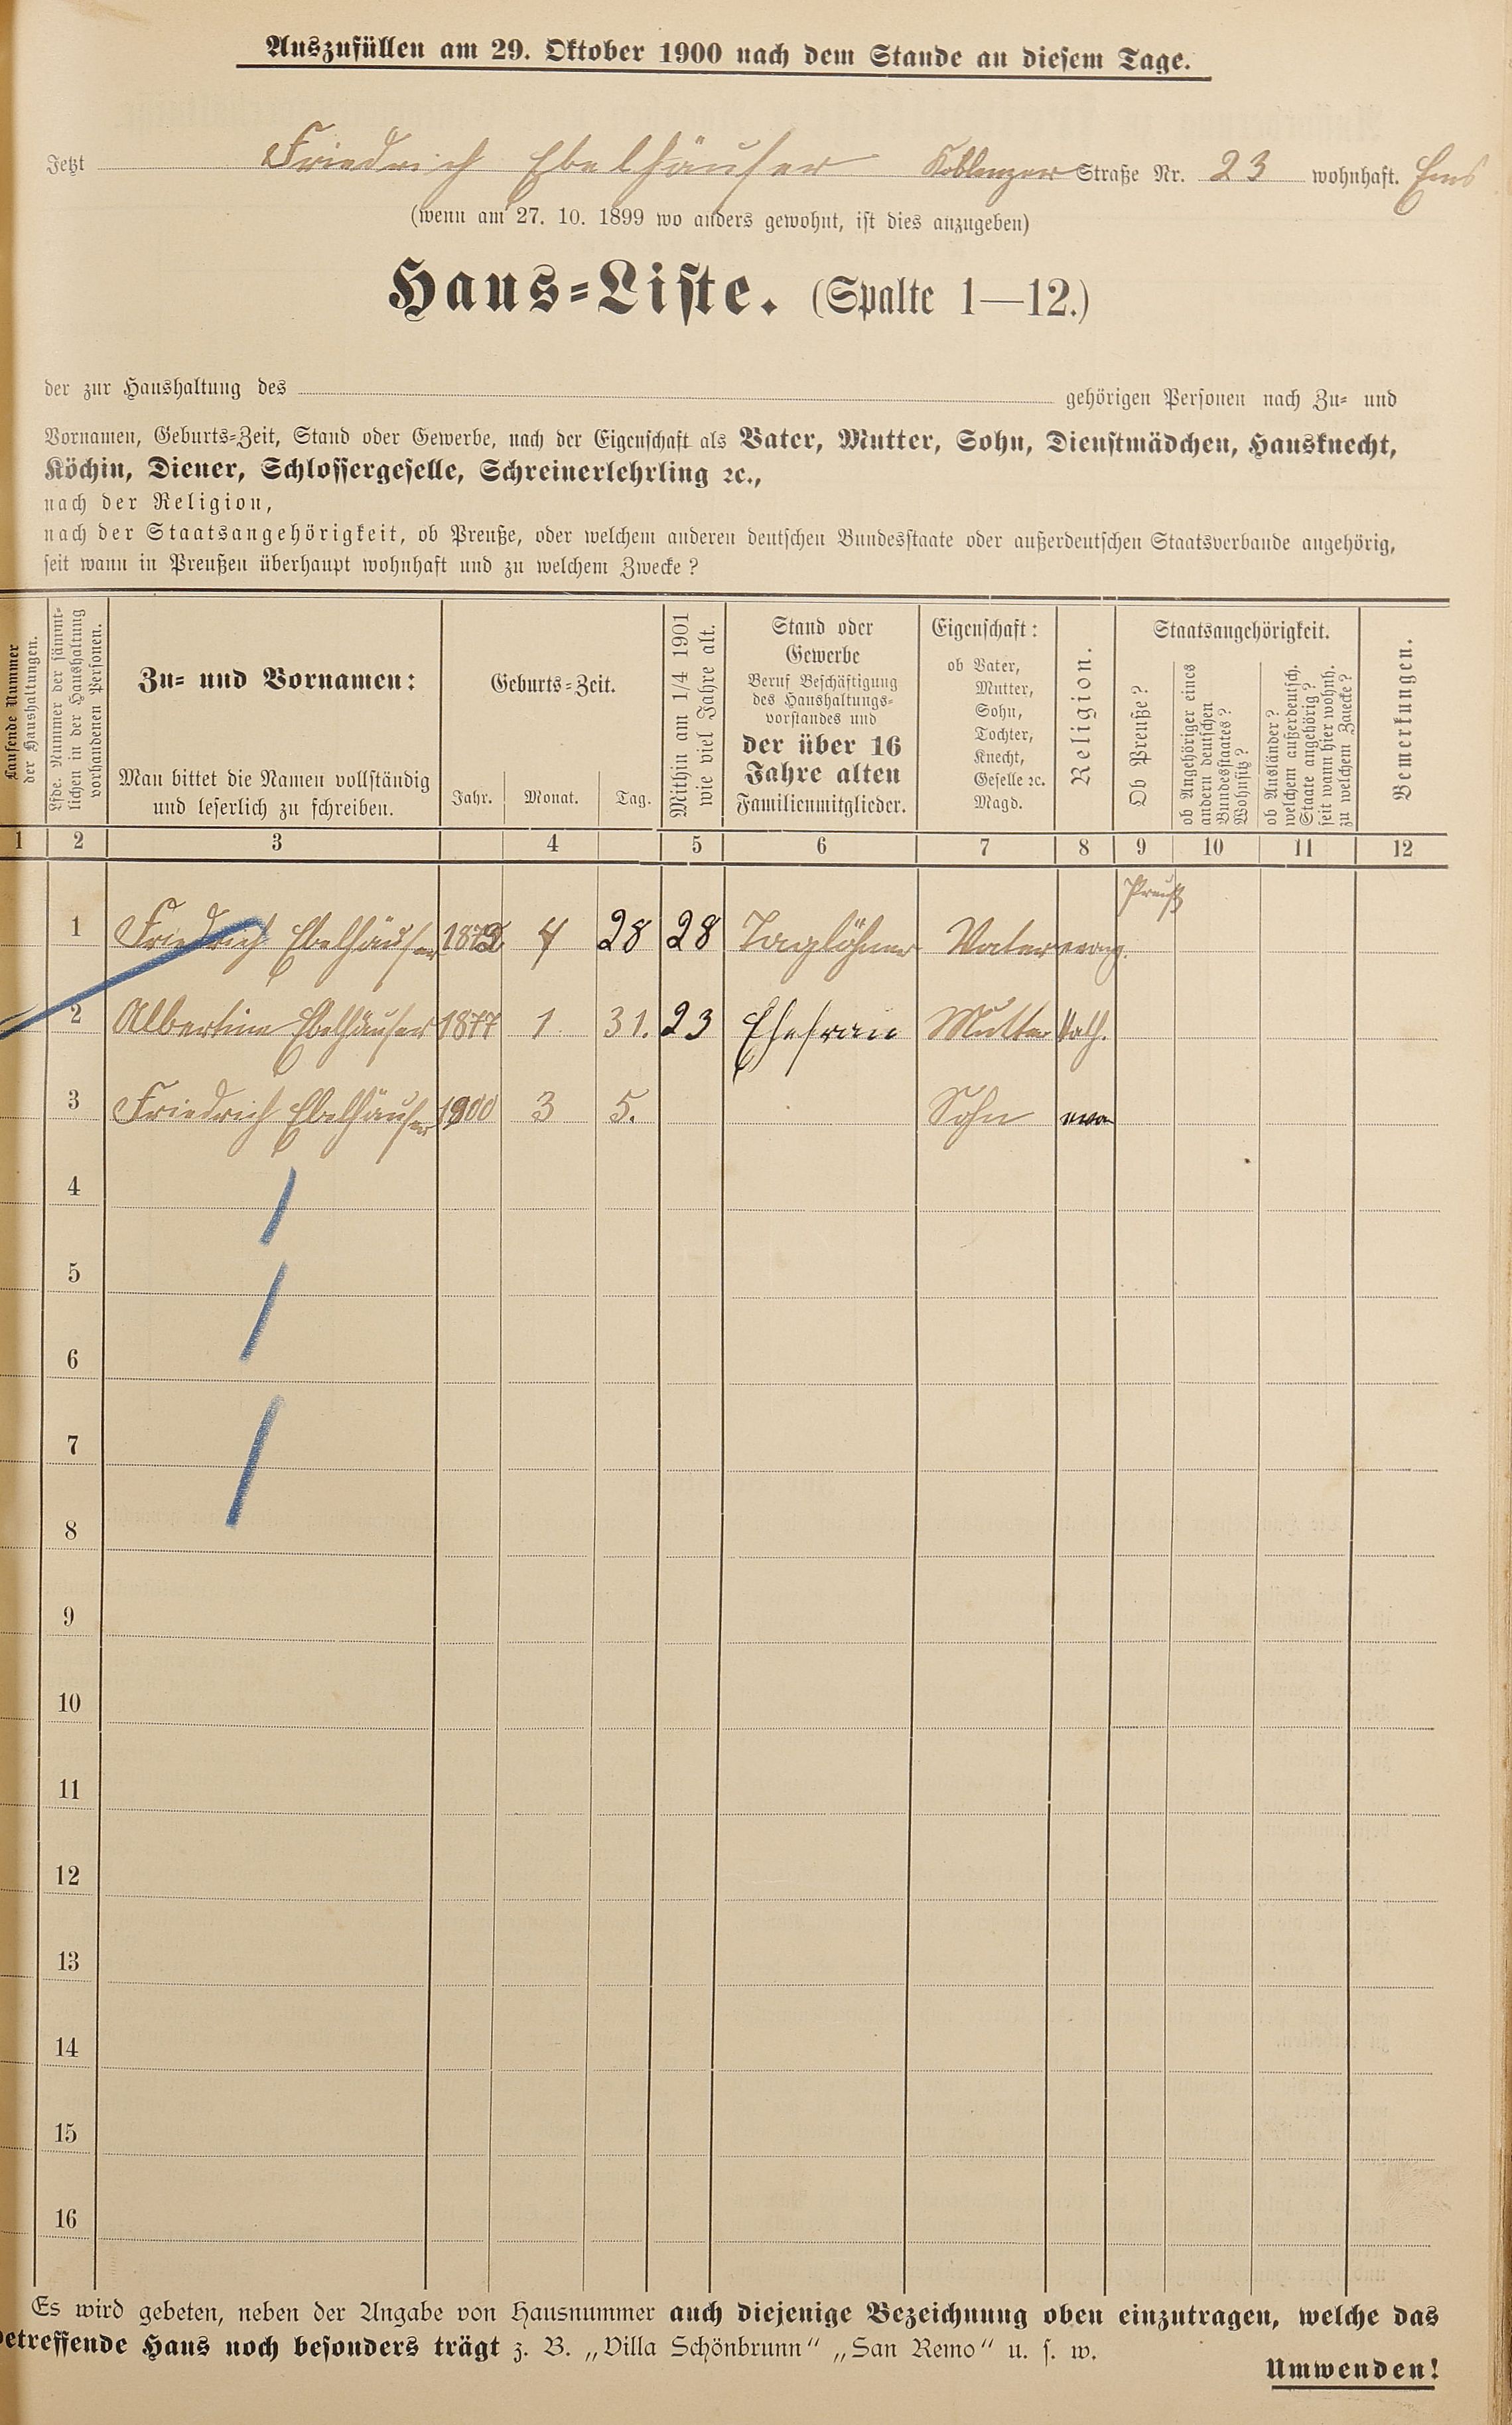 Auszufüllen am 29. Oktober 1900 nach dem Stande an diesem Tage.
Jetzt Friedrich Ebelhäuser Koblenzer Straße Nr. 23 wohnhaft. Ems
(wenn am 27. 10. 1899 wo anders gewohnt, ist dies anzugeben)
Haus-Liste. (Spalte 1—12.)
der zur Haushaltung des gehörigen Personen nach Zu- und
Vornamen, Geburts-Zeit, Stand oder Gewerbe, nach der Eigenschaft als Vater, Mutter, Sohn, Dienstmädchen, Hausknecht,
Köchin, Diener, Schlossergeselle, Schreinerlehrling ꝛc.,
nach der Religion,
nach der Staatsangehörigkeit, ob Preuße, oder welchem anderen deutschen Bundesstaate oder außerdeutschen Staatsverbande angehörig,
seit wann in Preußen überhaupt wohnhaft und zu welchem Zwecke?
Laufende Nummer
der Haushaltungen.
Lfde. Nummer der sämmt-
lichen in der Haushaltung
vorhandenen Personen.
Zu- und Vornamen:
Man bittet die Namen vollständig
und leserlich zu schreiben.
Geburts-Zeit.
Jahr. Monat. Tag.
Mithin am 1/4 1901
wie viel Jahre alt.
Stand oder
Gewerbe
Beruf Beschäftigung
des Haushaltungs-
vorstandes und
der über 16
Jahre alten
Familienmitglieder.
Eigenschaft:
ob Vater,
Mutter,
Sohn,
Tochter,
Knecht,
Geselle ꝛc.
Magd.
Religion.
Staatsangehörigkeit.
Ob Preuße?
ob Angehöriger eines
andern deutschen
Bundesstaates?
Wohnsitz?
ob Ausländer?
welchem außerdeutsch.
Staate angehörig?
seit wann hier wohnh.
zu welchem Zwecke?
Bemerkungen.
1 2 3 4 5 6 7 8 9 10 11 12
Preuß
1 Friedrich Ebelhäuser 1872 4 28 28 Taglöhner Vater evang.
2 Albertine Ebelhäuser 1877 1 31. 23 Ehefrau Mutter kath.
3 Friedrich Ebelhäuser 1900 3 5. Sohn eva
4
5
6
7
8
9
10
11
12
13
14
15
16
Es wird gebeten, neben der Angabe von Hausnummer auch diejenige Bezeichnung oben einzutragen, welche das
betreffende Haus noch besonders trägt z. B. „Villa Schönbrunn“ „San Remo“ u. s. w.
Umwenden!